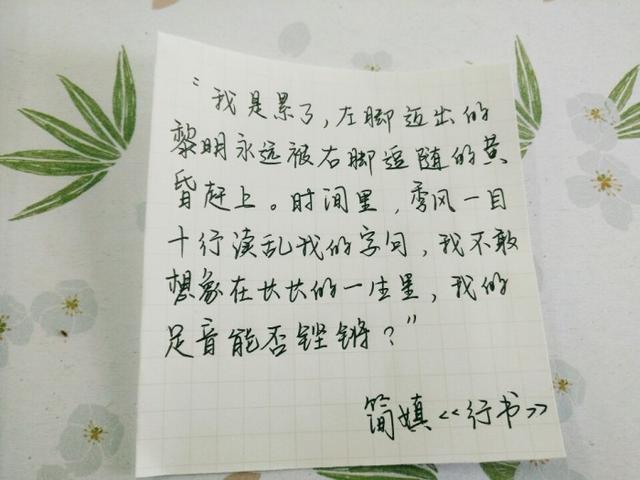 “我是累了,左脚迈出的
黎明永远被右脚追随的黄
昏赶上。时间里,季风一目
十行渎乱我的字句,我不敢
想象在长长的一生里,我的
足音能否铿锵?”
简媜《行书》